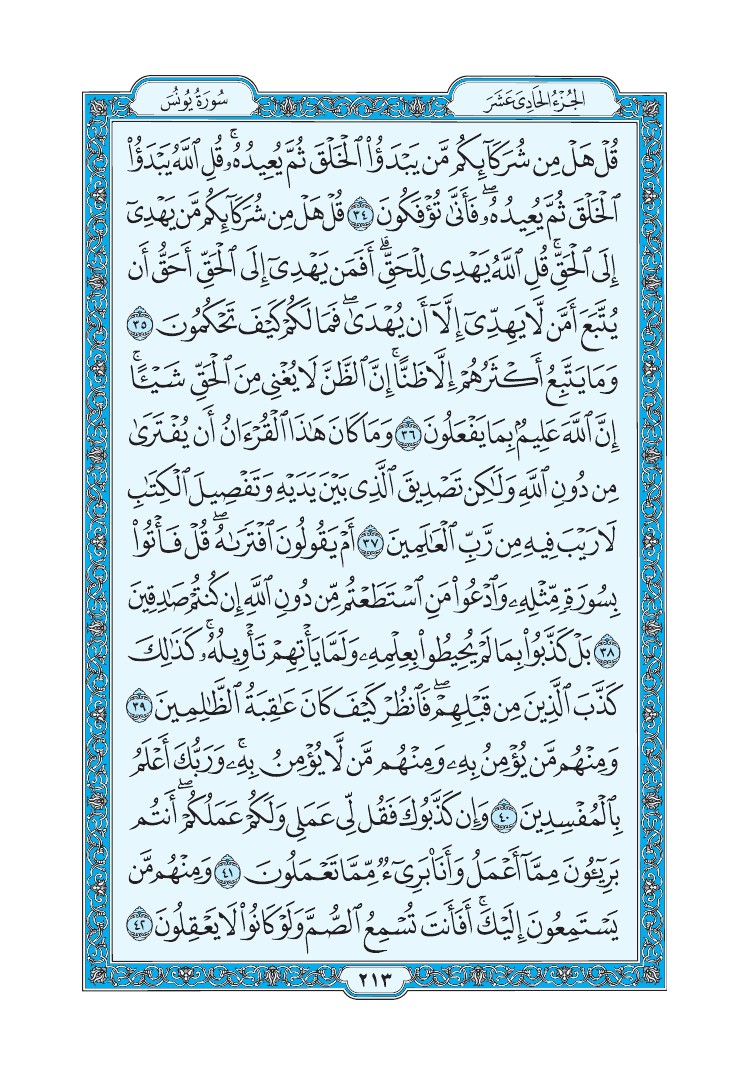 الجُزْءُ الحَادِى عَشَرَ
سُورَةُ يُونُسَ
قُلْ هَلْ مِن شُرَكَآئِكُم مَّن يَبْدَؤُا۟ ٱلْخَلْقَ ثُمَّ يُعِيدُهُۥ ۚ قُلِ ٱللَّهُ يَبْدَؤُا۟
ٱلْخَلْقَ ثُمَّ يُعِيدُهُۥ ۖ فَأَنَّىٰ تُؤْفَكُونَ ٣٤ قُلْ هَلْ مِن شُرَكَآئِكُم مَّن يَهْدِىٓ
إِلَى ٱلْحَقِّ ۚ قُلِ ٱللَّهُ يَهْدِى لِلْحَقِّ ۗ أَفَمَن يَهْدِىٓ إِلَى ٱلْحَقِّ أَحَقُّ أَن
يُتَّبَعَ أَمَّن لَّا يَهِدِّىٓ إِلَّآ أَن يُهْدَىٰ ۖ فَمَا لَكُمْ كَيْفَ تَحْكُمُونَ ٣٥
وَمَا يَتَّبِعُ أَكْثَرُهُمْ إِلَّا ظَنًّا ۚ إِنَّ ٱلظَّنَّ لَا يُغْنِى مِنَ ٱلْحَقِّ شَيْـًٔا ۚ
إِنَّ ٱللَّهَ عَلِيمٌۢ بِمَا يَفْعَلُونَ ٣٦ وَمَا كَانَ هَـٰذَا ٱلْقُرْءَانُ أَن يُفْتَرَىٰ
مِن دُونِ ٱللَّهِ وَلَـٰكِن تَصْدِيقَ ٱلَّذِى بَيْنَ يَدَيْهِ وَتَفْصِيلَ ٱلْكِتَـٰبِ
لَا رَيْبَ فِيهِ مِن رَّبِّ ٱلْعَـٰلَمِينَ ٣٧ أَمْ يَقُولُونَ ٱفْتَرَىٰهُ ۖ قُلْ فَأْتُوا۟
بِسُورَةٍ مِّثْلِهِۦ وَٱدْعُوا۟ مَنِ ٱسْتَطَعْتُم مِّن دُونِ ٱللَّهِ إِن كُنتُمْ صَـٰدِقِينَ
٣٨ بَلْ كَذَّبُوا۟ بِمَا لَمْ يُحِيطُوا۟ بِعِلْمِهِۦ وَلَمَّا يَأْتِهِمْ تَأْوِيلُهُۥ ۚ كَذَٰلِكَ
كَذَّبَ ٱلَّذِينَ مِن قَبْلِهِمْ ۖ فَٱنظُرْ كَيْفَ كَانَ عَـٰقِبَةُ ٱلظَّـٰلِمِينَ ٣٩
وَمِنْهُم مَّن يُؤْمِنُ بِهِۦ وَمِنْهُم مَّن لَّا يُؤْمِنُ بِهِۦ ۚ وَرَبُّكَ أَعْلَمُ
بِٱلْمُفْسِدِينَ ٤٠ وَإِن كَذَّبُوكَ فَقُل لِّى عَمَلِى وَلَكُمْ عَمَلُكُمْ ۖ أَنتُم
بَرِيٓـُٔونَ مِمَّآ أَعْمَلُ وَأَنَا۠ بَرِىٓءٌ مِّمَّا تَعْمَلُونَ ٤١ وَمِنْهُم مَّن
يَسْتَمِعُونَ إِلَيْكَ ۚ أَفَأَنتَ تُسْمِعُ ٱلصُّمَّ وَلَوْ كَانُوا۟ لَا يَعْقِلُونَ ٤٢
٢١٣